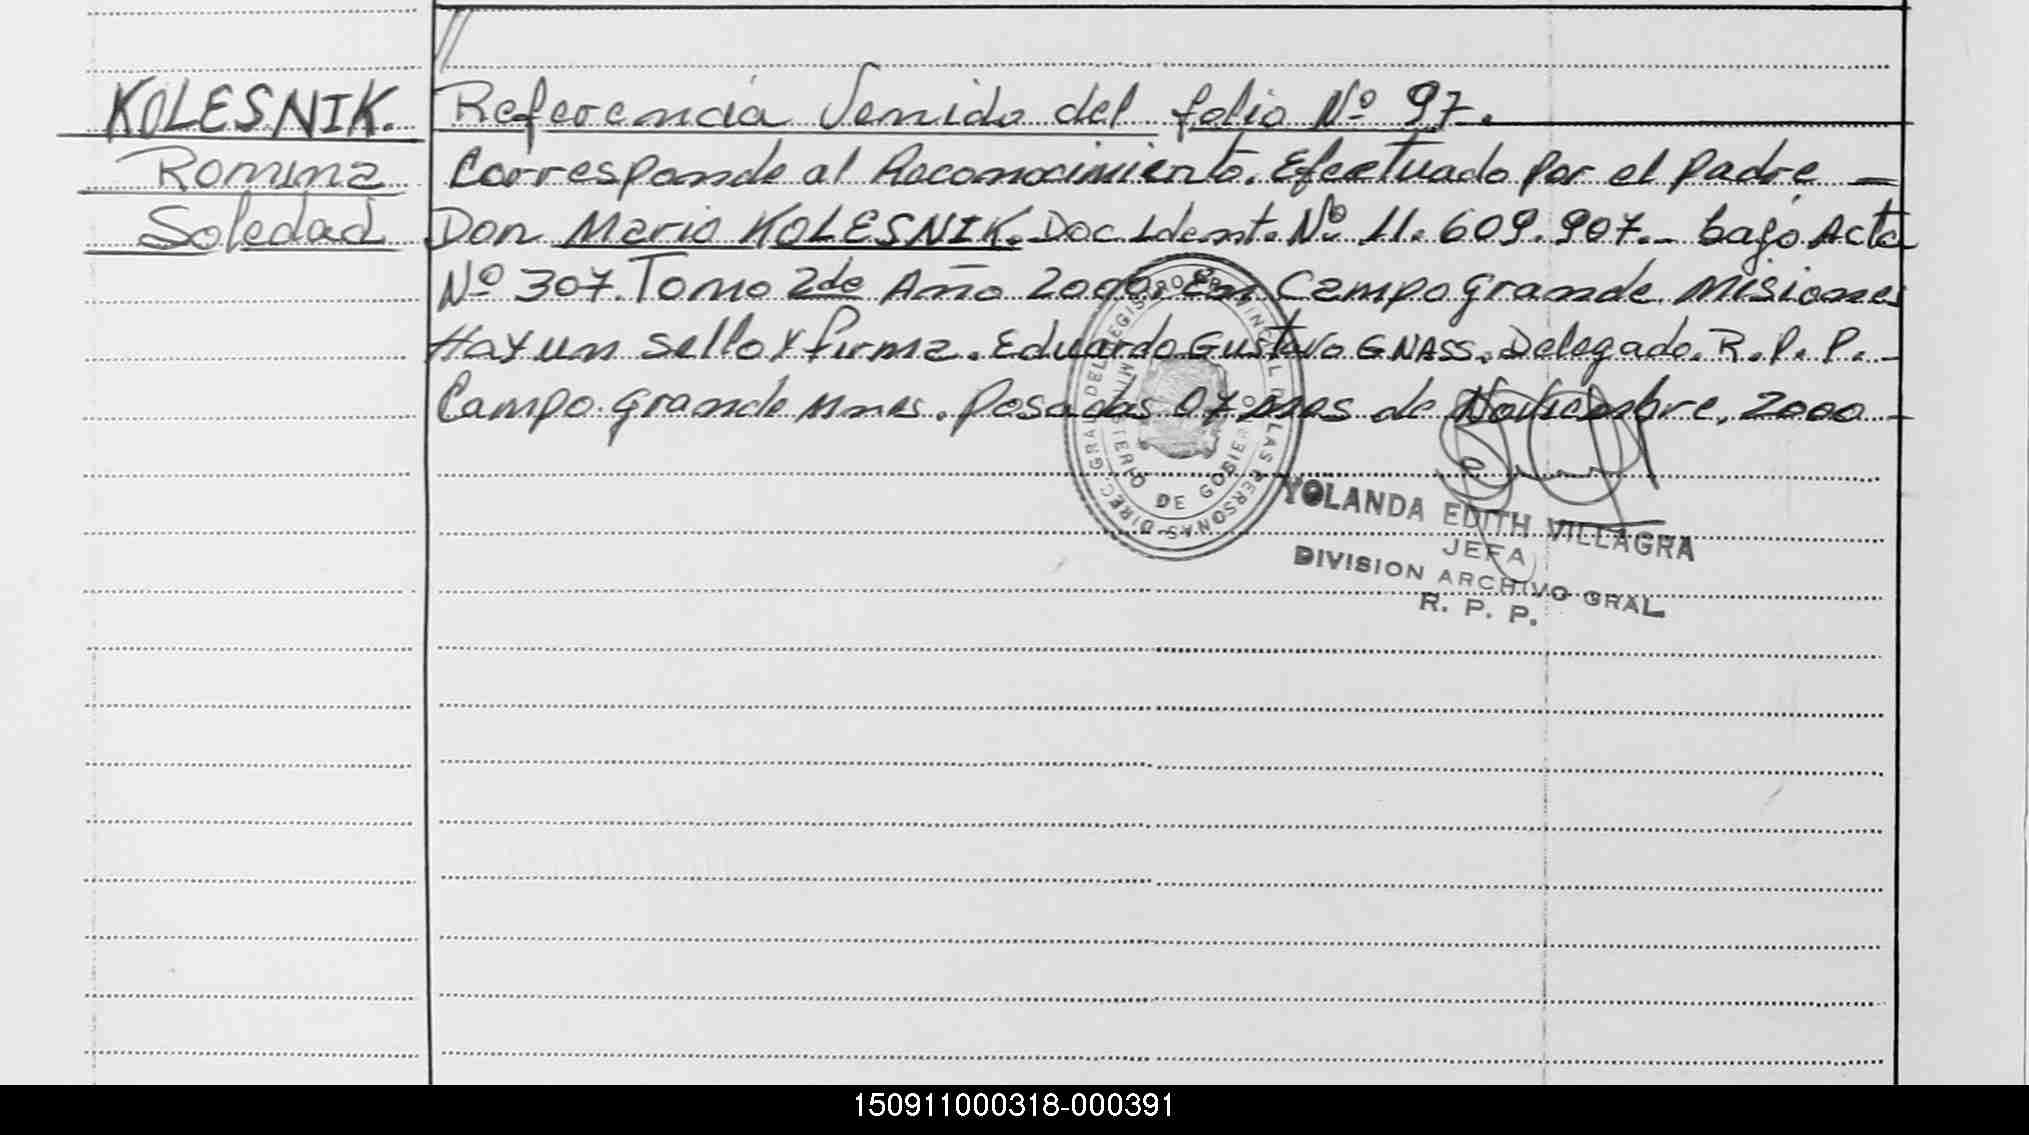 //
KOLESNIK.
Romina
Soledad
Referencia Venido del folio Nº 97.
Corresponde al Reconocimiento. Efectuado por el padre —
Don Mario KOLESNIK. Doc Ident. Nº 11.609.907.- bajo Acta
Nº 307. Tomo 2do Año 2000. En Campo grande Misiones
Hay un sello y firma. Eduardo Gustavo GNASS. Delegado. R.P.P.-
Campo grande Mnes. Posadas 07 mes de Noviembre, 2000 -
DIREC. GRAL. DEL REGISTRO PROVINCIAL DE LAS PERSONAS
MINISTERIO DE GOBIERNO
YOLANDA EDITH VILLAGRA
JEFA
DIVISION ARCHIVO GRAL.
R. P. P.
150911000318-000391